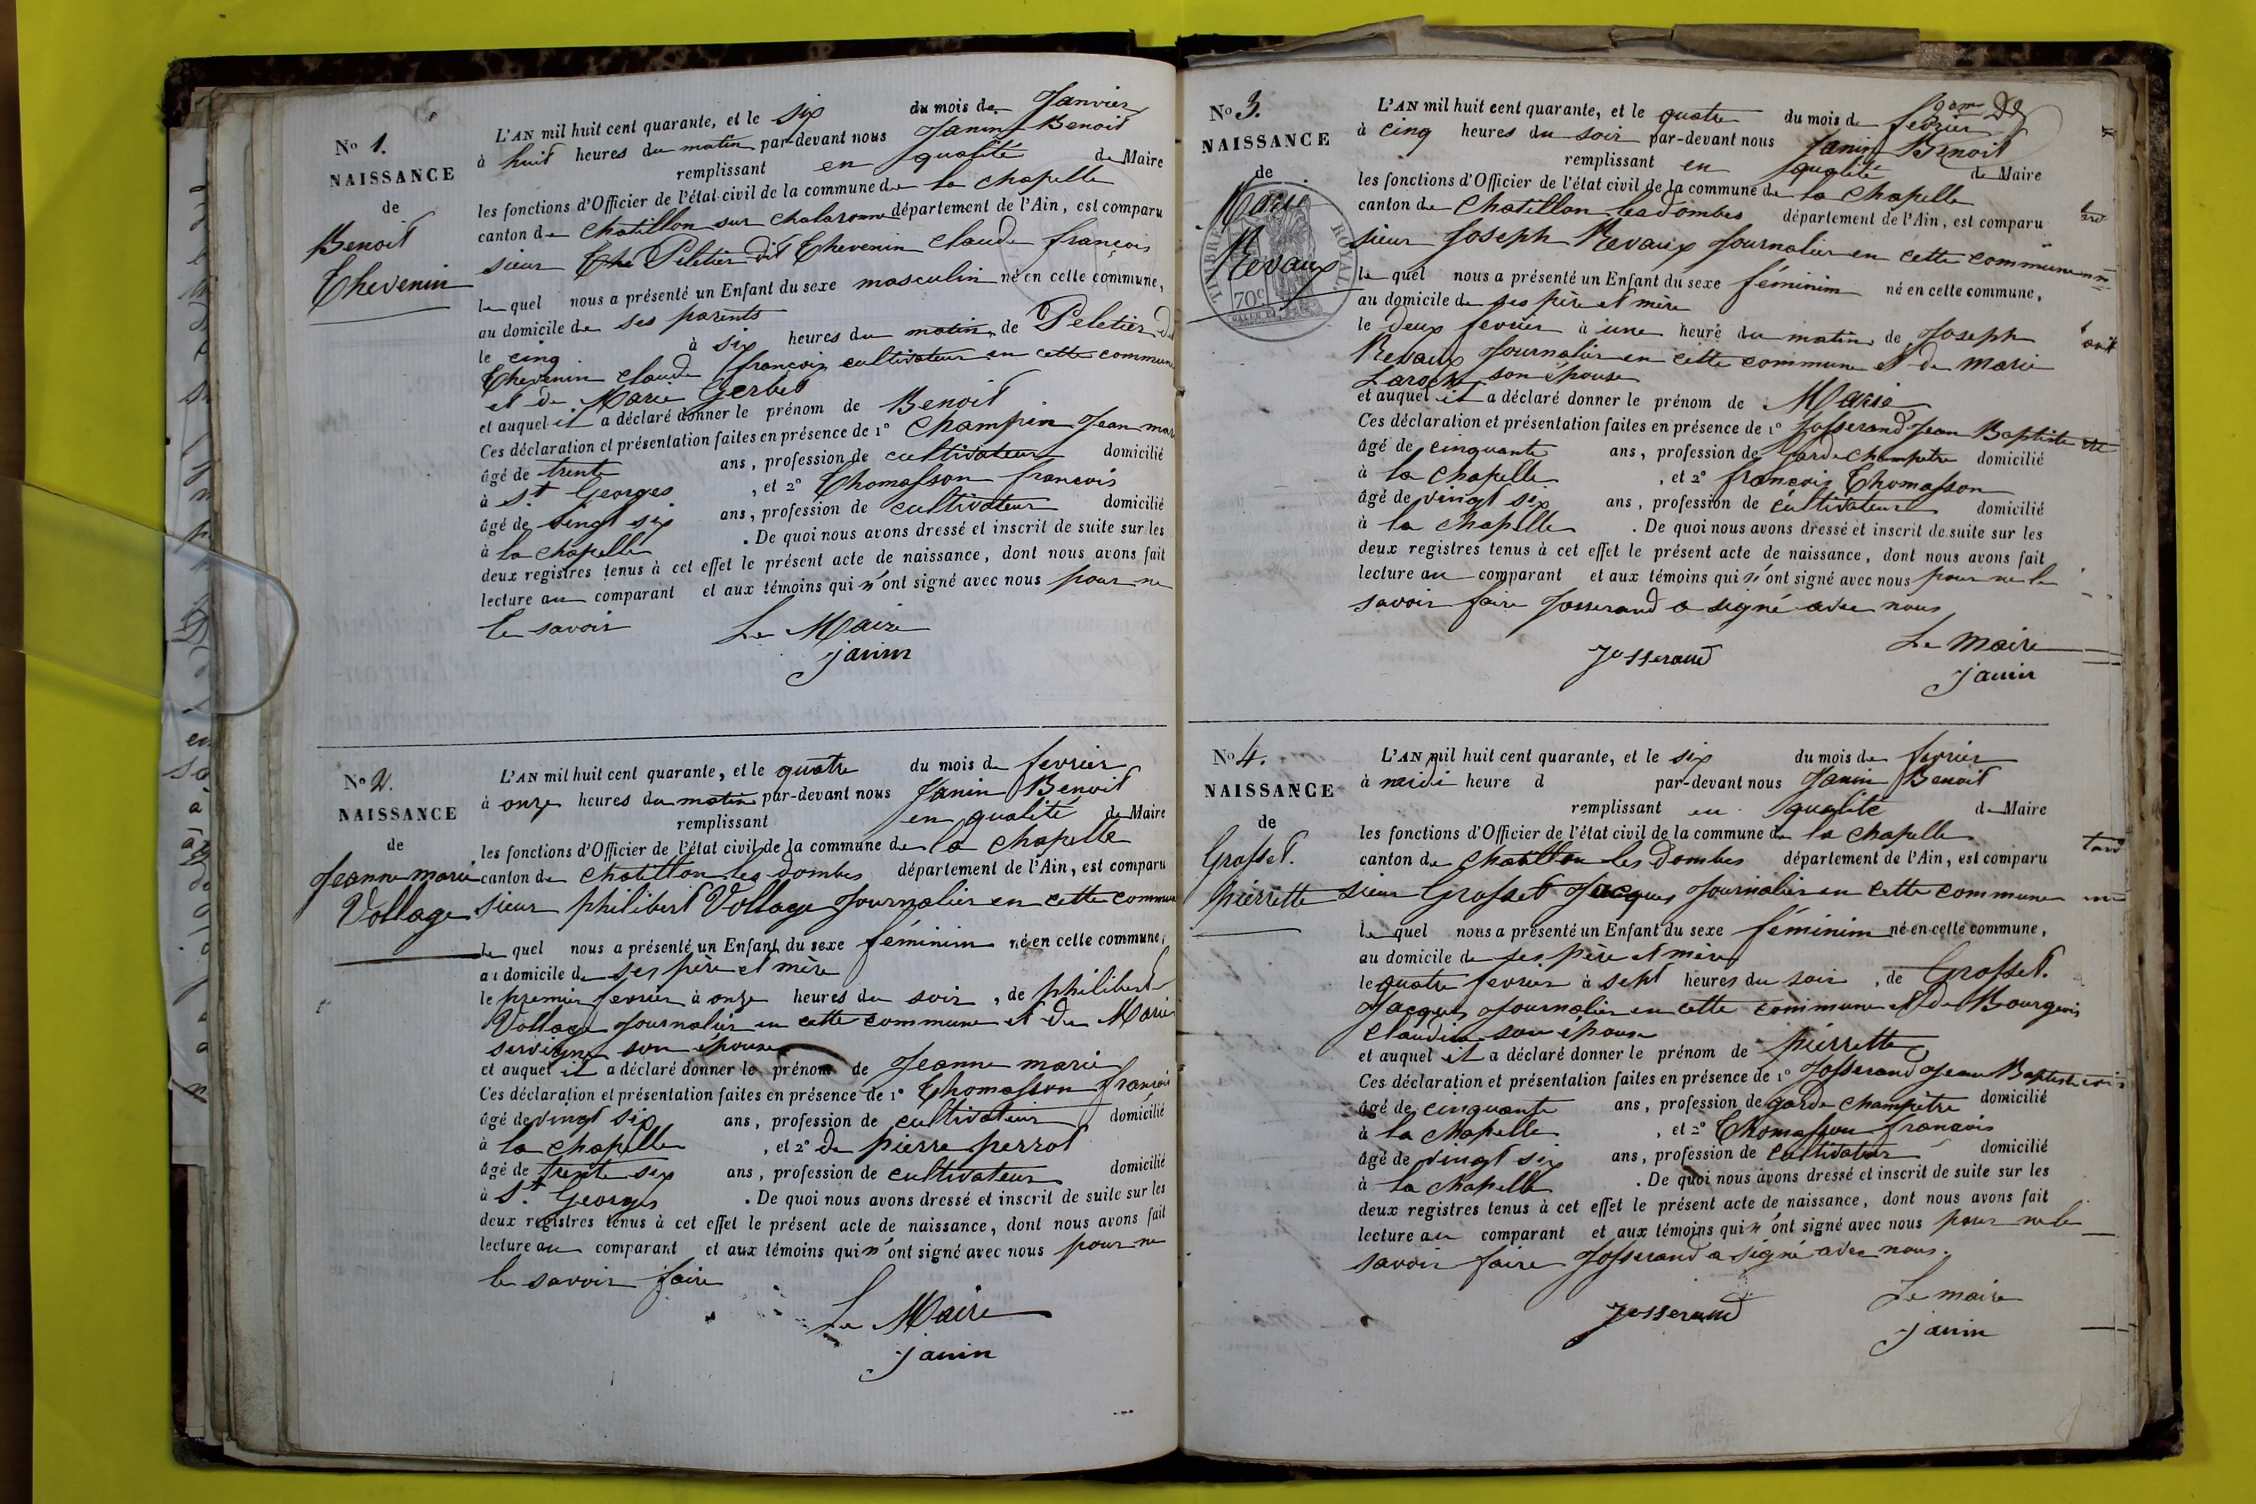 No 1.
NAISSANCE
de
Benoit
Thevenin
L'AN mil huit cent quarante, et le six du mois de Janvier
à huit heures du matin par-devant nous Janin Benoit
remplissant en qualité de Maire
les fonctions d'Officier de l'état civil de la commune de la chapelle
canton de chatillon sur chalaronne département de l'Ain, est comparu
sieur The Peletier dit Thevenin claude françois
le quel nous a présenté un Enfant du sexe masculin né en cette commune,
au domicile de ses parents
le cinq à six heures du matin, de Peletier dit
Thevenin claude françois cultivateur en cette commune
et de Marie Gerbet
et auquel il a déclaré donner le prénom de Benoit
Ces déclaration et présentation faites en présence de 1° Champin Jean mar
âgé de trente ans, profession de cultivateur domicilié
à St Georges , et 2° Thomasson francois
âgé de vingt six ans, profession de cultivateur domicilié
à la chapelle . De quoi nous avons dressé et inscrit de suite sur les
deux registres tenus à cet effet le présent acte de naissance, dont nous avons fait
lecture au comparant et aux témoins qui n'ont signé avec nous pour ne
le savoir
Le Maire
janin
No 2.
NAISSANCE
de
Jeanne marie
Vollage
L'AN mil huit cent quarante, et le quatre du mois de fevrier
à onze heures du matin par-devant nous Janin Benoit
remplissant en qualité de Maire
les fonctions d'Officier de l'état civil de la commune de la chapelle
canton de chatillon les dombes département de l'Ain, est comparu
sieur philibert Vollage Journalier en cette commune
le quel nous a présenté un Enfant du sexe féminim né en cette commune,
au domicile de ses père et mère
le premier fevrier à onze heures du soir, de philibert
Vollage Journalier en cette commune et de Marie
servigne son épouse
et auquel il a déclaré donner le prénom de Jeanne marie
Ces déclaration et présentation faites en présence de 1° Thomasson francois
âgé de vingt six ans, profession de cultivateur domicilié
à la chapelle , et 2° de pierre perrot
âgé de trente six ans, profession de cultivateur domicilié
à St. Georges . De quoi nous avons dressé et inscrit de suite sur les
deux registres tenus à cet effet le présent acte de naissance, dont nous avons fait
lecture au comparant et aux témoins qui n'ont signé avec nous pour ne
le savoir faire
Le Maire
janin
No 3.
NAISSANCE
de
Marie
Revaux
TIMBRE ROYAL
70c
L'AN mil huit cent quarante, et le quatre du mois de fevrier
à cinq heures du soir par-devant nous Janin Benoit
remplissant en qualité de Maire
les fonctions d'Officier de l'état civil de la commune de la chapelle
canton de Chatillon les dombes département de l'Ain, est comparu
sieur Joseph Revaux Journalier en cette commune
le quel nous a présenté un Enfant du sexe féminim né en cette commune,
au domicile de ses père et mère
le deux fevrier à une heure du matin de Joseph
Revaux Journalier en cette commune et de marie
Laroche son épouse
et auquel il a déclaré donner le prénom de Marie
Ces déclaration et présentation faites en présence de 1° Josserand Jean Baptiste
âgé de cinquante ans, profession de Garde champetre domicilié
à la chapelle , et 2° françois Thomasson
âgé de vingt six ans, profession de cultivateur domicilié
à la chapelle . De quoi nous avons dressé et inscrit de suite sur les
deux registres tenus à cet effet le présent acte de naissance, dont nous avons fait
lecture au comparant et aux témoins qui n'ont signé avec nous pour ne le
savoir faire Josserand a signé avec nous
Josserand
Le maire
janin
No 4.
NAISSANCE
de
Grosset.
pierrette
L'AN mil huit cent quarante, et le six du mois de fevrier
à midi heure d par-devant nous Janin Benoit
remplissant en qualité de Maire
les fonctions d'Officier de l'état civil de la commune de la chapelle
canton de chatillon les dombes département de l'Ain, est comparu
sieur Grosset Jacques Journalier en cette commune
le quel nous a présenté un Enfant du sexe féminim né en cette commune,
au domicile de ses père et mère
le quatre fevrier à sept heures du soir, de Grosset.
Jacques Journalier en cette commune et de Bourgeois
claudine son épouse
et auquel il a déclaré donner le prénom de pierrette
Ces déclaration et présentation faites en présence de 1° Josserand Jean Baptiste
âgé de cinquante ans, profession de garde champêtre domicilié
à la chapelle , et 2° Thomasson francois
âgé de vingt six ans, profession de cultivateur domicilié
à la chapelle . De quoi nous avons dressé et inscrit de suite sur les
deux registres tenus à cet effet le présent acte de naissance, dont nous avons fait
lecture au comparant et aux témoins qui n'ont signé avec nous pour ne le
savoir faire Josserand a signé avec nous.
Josserand
Le maire
janin